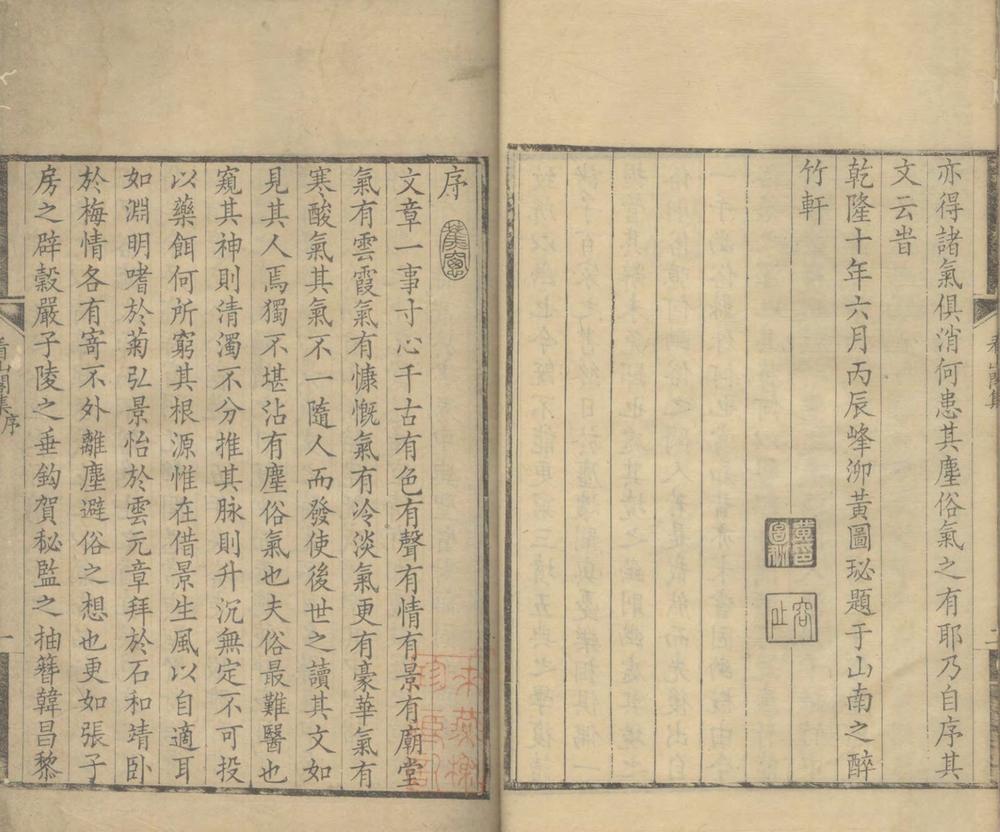 亦得諸氣俱消何患其塵俗氣之有耶乃自序其
文云旹
乾隆十年六月丙辰峰泖黃圖珌題于山南之醉
竹軒
容止
序
文章一事寸心千古有色有聲有情有景有廟堂
氣有雲霞氣有慷慨氣有冷淡氣更有豪華氣有
寒酸氣其氣不一隨人而發使後世之讀其文如
見其人焉獨不堪沾有塵俗氣也夫俗最難醫也
窺其神則清濁不分推其脉則升沉無定不可投
以藥餌何所窮其根源惟在借景生風以自適耳
如淵明嗜於菊弘景怡於雲元章拜於石和靖卧
於梅情各有寄不外離塵避俗之想也更如張子
房之辟穀嚴子陵之垂鈎賀秘監之抽簪韓昌黎
看山閣集序
一